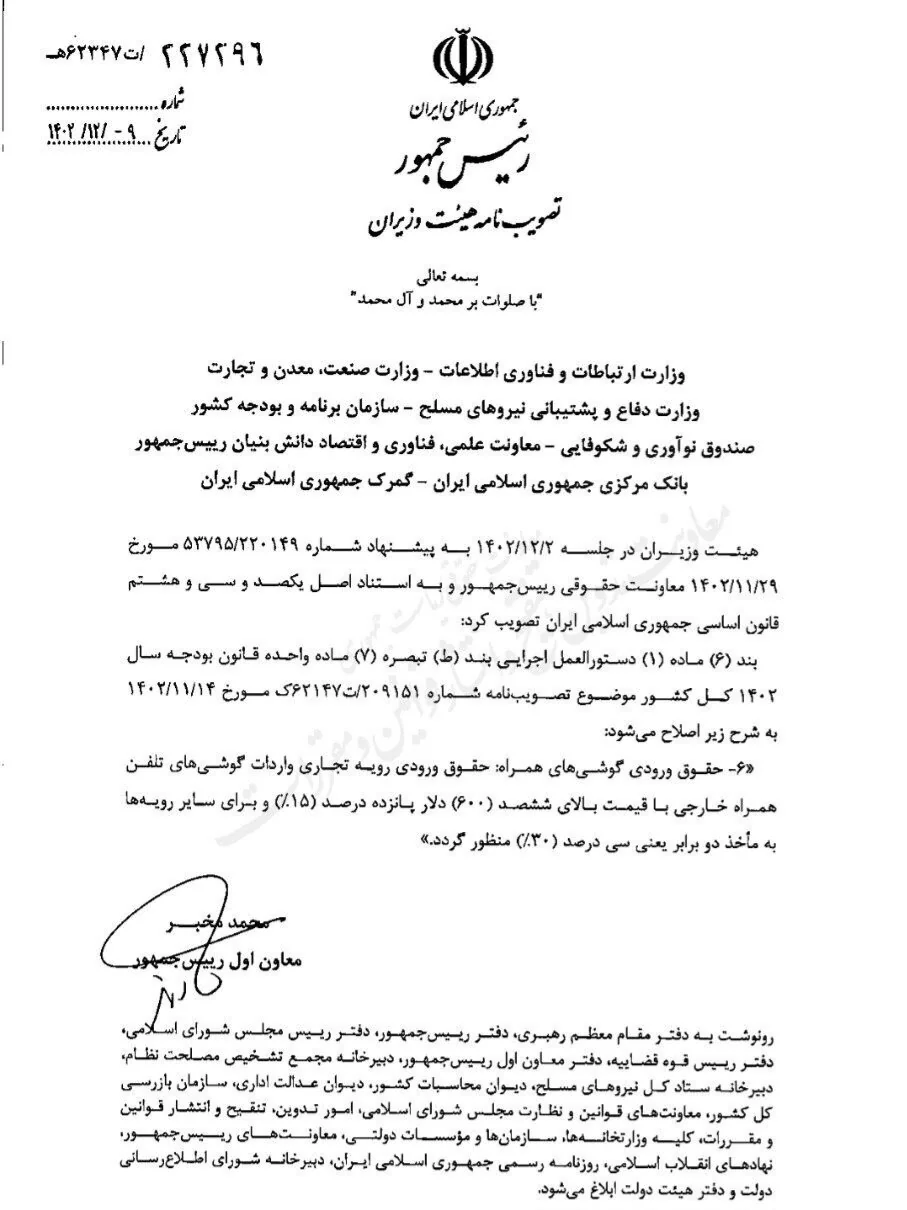 ۲۲۷۲۹۶ /ت۶۲۳۴۷هـ
شماره ......................
تاریخ ۹ -/۱۲/ ۱۴۰۲
جمهوری اسلامی ایران
رئیس جمهور
تصویب نامه هیئت وزیران
بسمه تعالی
"با صلوات بر محمد و آل محمد"
وزارت ارتباطات و فناوری اطلاعات – وزارت صنعت، معدن و تجارت
وزارت دفاع و پشتیبانی نیروهای مسلح – سازمان برنامه و بودجه کشور
صندوق نوآوری و شکوفایی – معاونت علمی، فناوری و اقتصاد دانش بنیان رییس‌جمهور
بانک مرکزی جمهوری اسلامی ایران – گمرک جمهوری اسلامی ایران
هیئت وزیران در جلسه ۱۴۰۲/۱۲/۲ به پیشنهاد شماره ۵۳۷۹۵/۲۲۰۱۴۹ مورخ
۱۴۰۲/۱۱/۲۹ معاونت حقوقی رییس‌جمهور و به استناد اصل یکصد و سی و هشتم
قانون اساسی جمهوری اسلامی ایران تصویب کرد:
بند (۶) ماده (۱) دستورالعمل اجرایی بند (ط) تبصره (۷) ماده واحده قانون بودجه سال
۱۴۰۲ کل کشور موضوع تصویب‌نامه شماره ۲۰۹۱۵۱/ت۶۲۱۴۷ک مورخ ۱۴۰۲/۱۱/۱۴
به شرح زیر اصلاح می‌شود:
«۶- حقوق ورودی گوشی‌های همراه: حقوق ورودی رویه تجاری واردات گوشی‌های تلفن
همراه خارجی با قیمت بالای ششصد (۶۰۰) دلار پانزده درصد (۱۵٪) و برای سایر رویه‌ها
به مأخذ دو برابر یعنی سی درصد (۳۰٪) منظور گردد.»
محمد مخبر
معاون اول رییس‌جمهور
رونوشت به دفتر مقام معظم رهبری، دفتر رییس‌جمهور، دفتر رییس مجلس شورای اسلامی،
دفتر رییس قوه قضاییه، دفتر معاون اول رییس‌جمهور، دبیرخانه مجمع تشخیص مصلحت نظام،
دبیرخانه ستاد کل نیروهای مسلح، دیوان محاسبات کشور، دیوان عدالت اداری، سازمان بازرسی
کل کشور، معاونت‌های قوانین و نظارت مجلس شورای اسلامی، امور تدوین، تنقیح و انتشار قوانین
و مقررات، کلیه وزارتخانه‌ها، سازمان‌ها و مؤسسات دولتی، معاونت‌های رییس‌جمهور،
نهادهای انقلاب اسلامی، روزنامه رسمی جمهوری اسلامی ایران، دبیرخانه شورای اطلاع‌رسانی
دولت و دفتر هیئت دولت ابلاغ می‌شود.